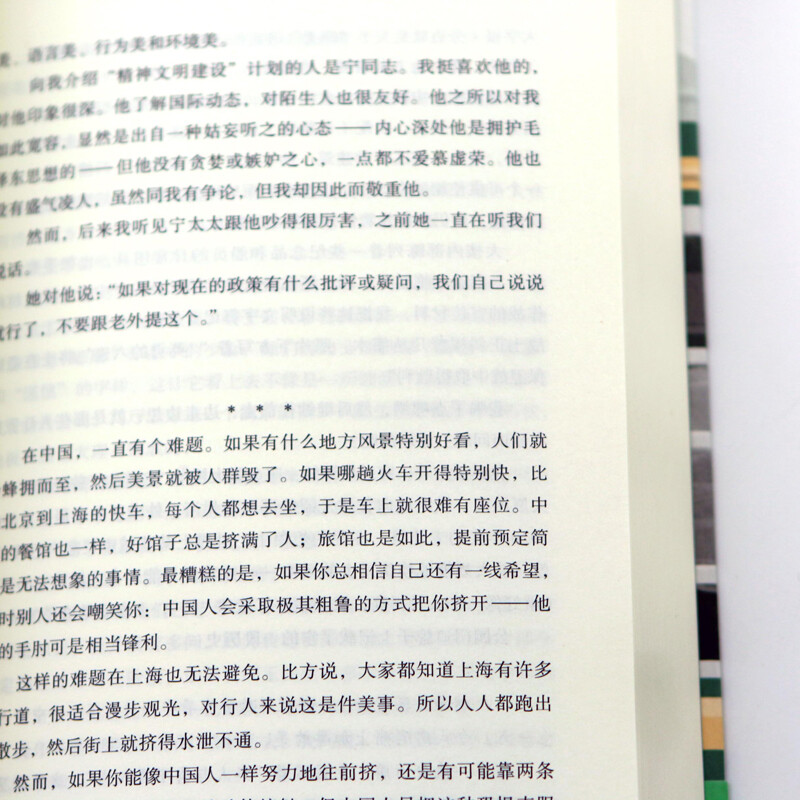 美、语言美、行为美和环境美。
向我介绍“精神文明建设”计划的人是宁同志。我挺喜欢他的，
对他印象很深。他了解国际动态，对陌生人也很友好。他之所以对我
如此宽容，显然是出自一种姑妄听之的心态——内心深处他是拥护毛
泽东思想的——但他没有贪婪或嫉妒之心，一点都不爱慕虚荣。他也
没有盛气凌人，虽然同我有争论，但我却因此而敬重他。
然而，后来我听见宁太太跟他吵得很厉害，之前她一直在听我们
说话。
她对他说：“如果对现在的政策有什么批评或疑问，我们自己说说
就行了，不要跟老外提这个。”
* * *
在中国，一直有个难题。如果有什么地方风景特别好看，人们就
蜂拥而至，然后美景就被人群毁了。如果哪趟火车开得特别快，比
北京到上海的快车，每个人都想去坐，于是车上就很难有座位。中
的餐馆也一样，好馆子总是挤满了人；旅馆也是如此，提前预定简
是无法想象的事情。最糟糕的是，如果你总相信自己还有一线希望，
时别人还会嘲笑你：中国人会采取极其粗鲁的方式把你挤开——他
的手肘可是相当锋利。
这样的难题在上海也无法避免。比方说，大家都知道上海有许多
行道，很适合漫步观光，对行人来说这是件美事。所以人人都跑出
散步，然后街上就挤得水泄不通。
然而，如果你能像中国人一样努力地往前挤，还是有可能靠两条